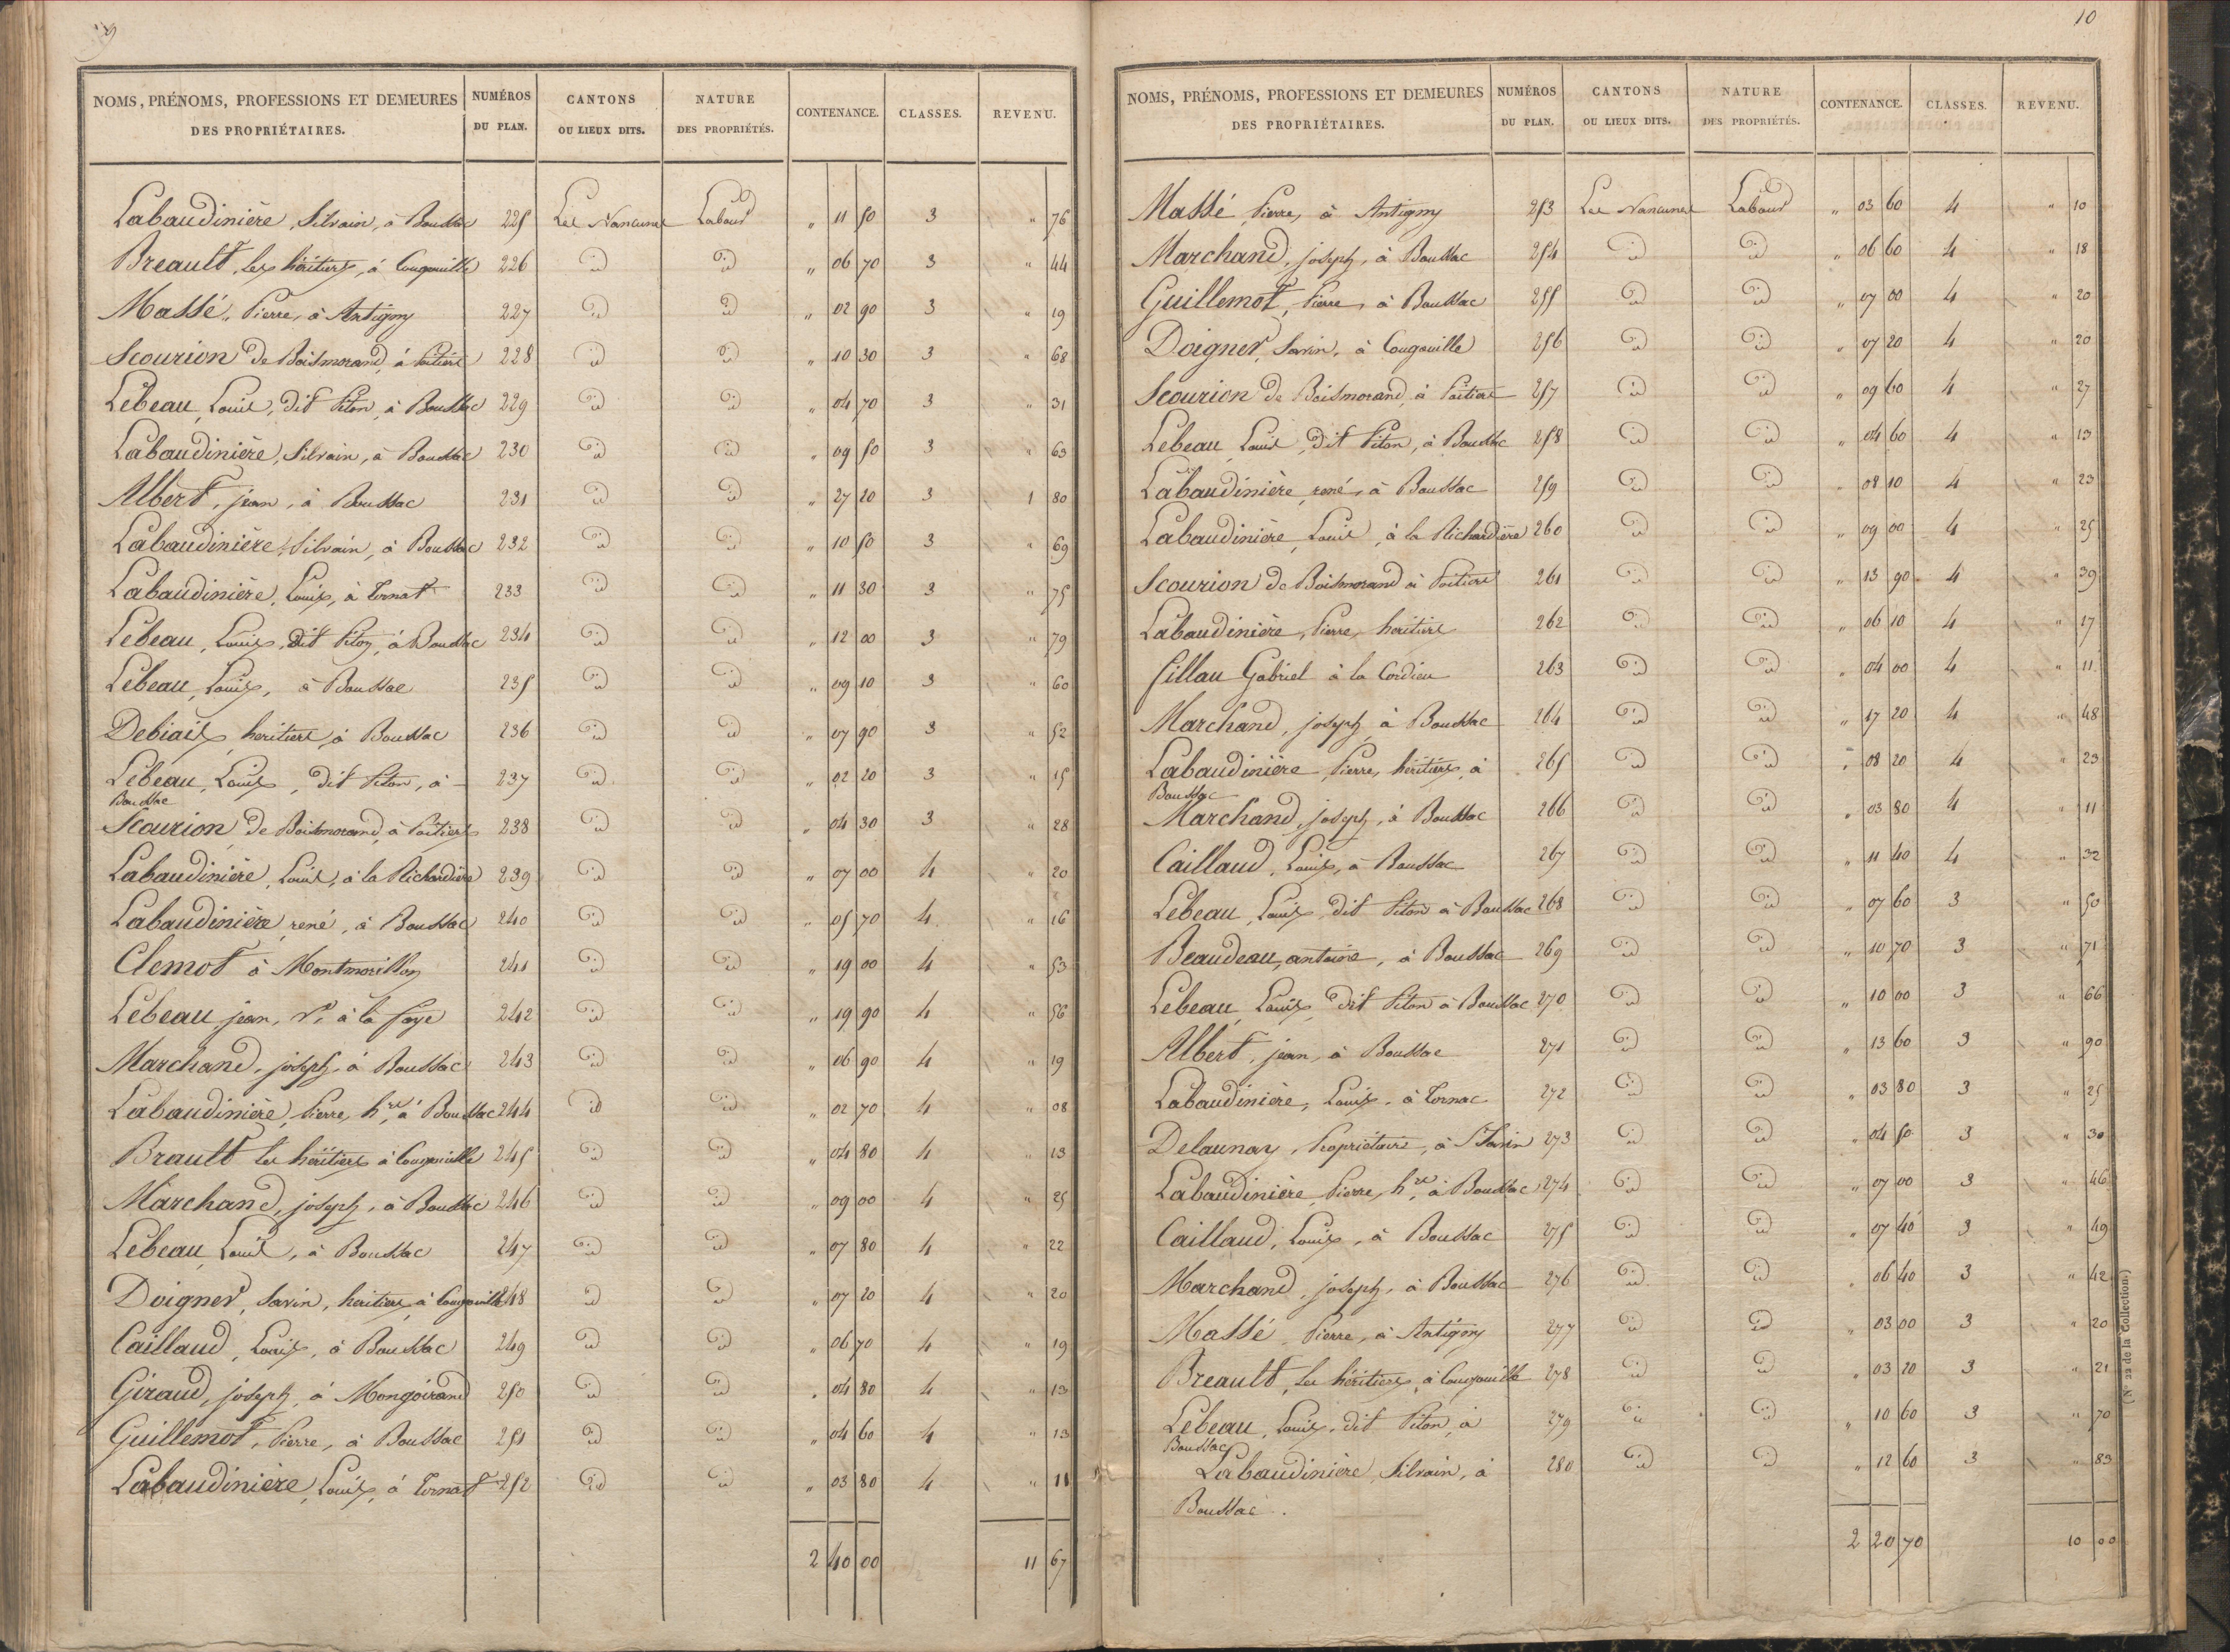 9
NOMS, PRÉNOMS, PROFESSIONS ET DEMEURES DES PROPRIÉTAIRES. NUMÉROS DU PLAN. CANTONS OU LIEUX DITS. NATURE DES PROPRIÉTÉS. CONTENANCE. CLASSES. REVENU.
Labaudinière, Silvain, à Boussac 225 Les Nancunes Labour " 11 50 3 " 76
Breault, les héritiers, à Cougouille 226 id id " 06 70 3 " 44
Massé, Pierre, à Antigny 227 id id " 02 90 3 " 19
Scourion de Boismorand, à Poitiers 228 id id " 10 30 3 " 68
Lebeau, Louis, dit Piton, à Boussac 229 id id " 04 70 3 " 31
Labaudinière, Silvain, à Boussac 230 id id " 09 50 3 " 63
Albert, jean, à Boussac 231 id id " 27 20 3 1 80
Labaudinière, Silvain, à Boussac 232 id id " 10 50 3 " 69
Labaudinière, Louis, à Tornat 233 id id " 11 30 3 " 75
Lebeau, Louis, dit Piton, à Boussac 234 id id " 12 00 3 " 79
Lebeau, Louis, à Boussac 235 id id " 09 10 3 " 60
Debiais, heritiers, à Boussac 236 id id " 07 90 3 " 52
Lebeau, Louis, dit Piton, à 237 id id " 02 20 3 " 15
Boussac
Scourion de Boismorand, à Poitiers 238 id id " 04 30 3 " 28
Labaudinière, Louis, à la Richardière 239 id id " 07 00 4 " 20
Labaudinière, rené, à Boussac 240 id id " 05 70 4 " 16
Clemot à Montmorillon 241 id id " 19 00 4 " 53
Lebeau, jean, Ve, à la faye 242 id id " 19 90 4 " 56
Marchand, joseph, à Boussac 243 id id " 06 90 4 " 19
Labaudinière, Pierre, hres, à Boussac 244 id id " 02 70 4 " 08
Brault les héritiers à Cougouille 245 id id " 04 80 4 " 13
Marchand, joseph, à Boussac 246 id id " 09 00 4 " 25
Lebeau, Louis, à Boussac 247 id id " 07 80 4 " 22
Doigner, Savin, heritiers, à Cougouille 248 id id " 07 20 4 " 20
Caillaud, Louis, à Boussac 249 id id " 06 70 4 " 19
Giraud, joseph, à Mongoirand 250 id id " 04 80 4 " 13
Guillemot, Pierre, à Boussac 251 id id " 04 60 4 " 13
Labaudinière, Louis, à Tornat 252 id id " 03 80 4 " 11
2 40 00 11 67
10
NOMS, PRÉNOMS, PROFESSIONS ET DEMEURES DES PROPRIÉTAIRES. NUMÉROS DU PLAN. CANTONS OU LIEUX DITS. NATURE DES PROPRIÉTÉS. CONTENANCE. CLASSES. REVENU.
Massé, Pierre, à Antigny 253 Les Nancunes Labour " 03 60 4 " 10
Marchand, joseph, à Boussac 254 id id " 06 60 4 " 18
Guillemot, Pierre, à Boussac 255 id id " 07 00 4 " 20
Doigner, Savin, à Cougouille 256 id id " 07 20 4 " 20
Scourion de Boismorand, à Poitiers 257 id id " 09 60 4 " 27
Lebeau, Louis, dit Piton, à Boussac 258 id id " 04 60 4 " 13
Labaudinière, rené, à Boussac 259 id id " 08 10 4 " 23
Labaudinière, Louis, à la Richardière 260 id id " 09 00 4 " 25
Scourion de Boismorand à Poitiers 261 id id " 13 90 4 " 39
Labaudinière, Pierre, heritiers 262 id id " 06 10 4 " 17
fillau Gabriel à la Cordieu 263 id id " 04 00 4 " 11
Marchand, joseph, à Boussac 264 id id " 17 20 4 " 48
Labaudinière, Pierre, héritiers, à 265 id id " 08 20 4 " 23
Boussac
Marchand, joseph, à Boussac 266 id id " 03 80 4 " 11
Caillaud, Louis, à Boussac 267 id id " 11 40 4 " 32
Lebeau, Louis, dit Piton à Boussac 268 id id " 07 60 3 " 50
Beaudeau, antoine, à Boussac 269 id id " 10 70 3 " 71
Lebeau, Louis, dit Piton à Boussac 270 id id " 10 00 3 " 66
Albert, jean, à Boussac 271 id id " 13 60 3 " 90
Labaudinière, Louis, à Tornac 272 id id " 03 80 3 " 25
Delaunay, Propriétaire, à St Savin 273 id id " 04 50 3 " 30
Labaudinière, Pierre, hres, à Boussac 274 id id " 07 00 3 " 46
Caillaud, Louis, à Boussac 275 id id " 07 40 3 " 49
Marchand, joseph, à Boussac 276 id id " 06 40 3 " 42
Massé, Pierre, à Antigny 277 id id " 03 00 3 " 20
Breault, les héritiers, à Cougouille 278 id id " 03 20 3 " 21
Lebeau, Louis, dit Piton, à 279 id id " 10 60 3 " 70
Boussac
Labaudinière, Silvain, à 280 id id " 12 60 3 " 83
Boussac.
2 20 70 10 00
(N° 22 de la Collection.)